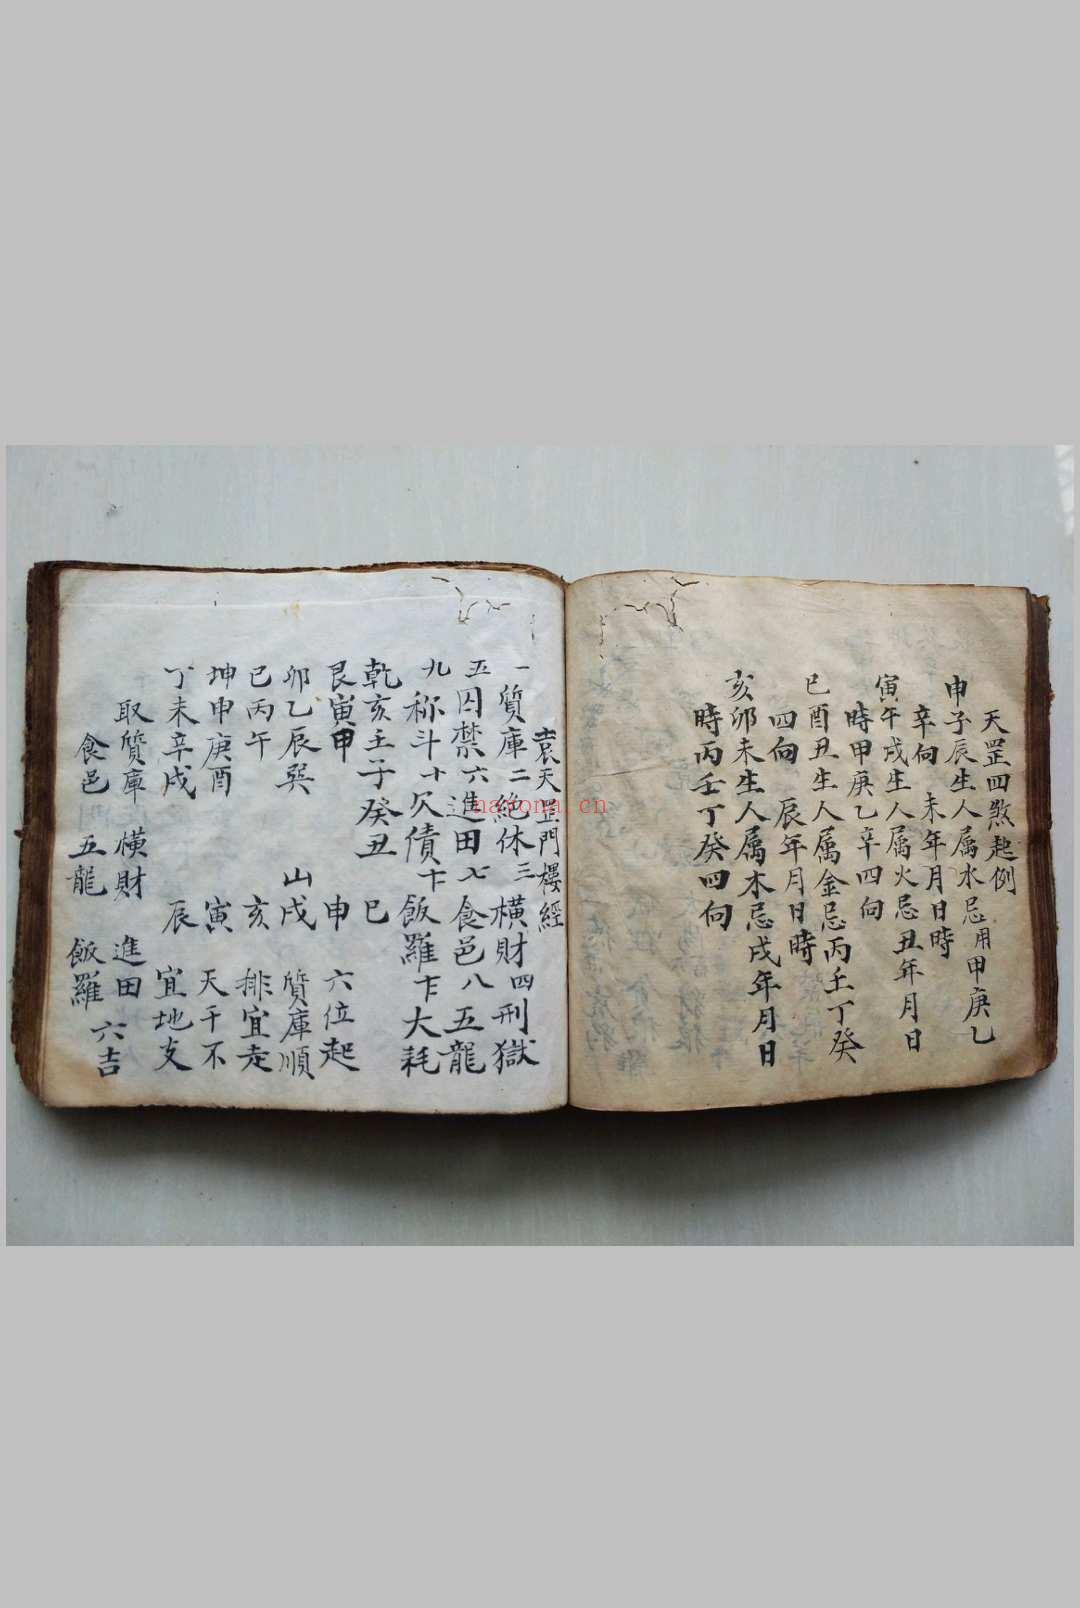 天罡四煞起例
申子辰生人属水忌用甲庚乙
辛向 未年月日時
寅午戌生人属火忌丑年月日
時甲庚乙辛四向
巳酉丑生人属金忌丙壬丁癸
四向 辰年月日時
亥卯未生人属木忌戌年月日
時丙壬丁癸四向
袁天罡門樓經
一質庫二絶休三橫財四刑獄
五囚禁六進田七食邑八五龍
九称斗十欠債十飯羅十大耗
乾亥壬子癸丑 巳
艮寅甲 申 六位起
卯乙辰巽 山戌 質庫順
巳丙午 亥 排宜走
坤申庚酉 寅 天干不
丁未辛戌 辰 宜地支
取質庫 橫財 進田
食邑 五龍 飯羅 六吉
nayona.cn